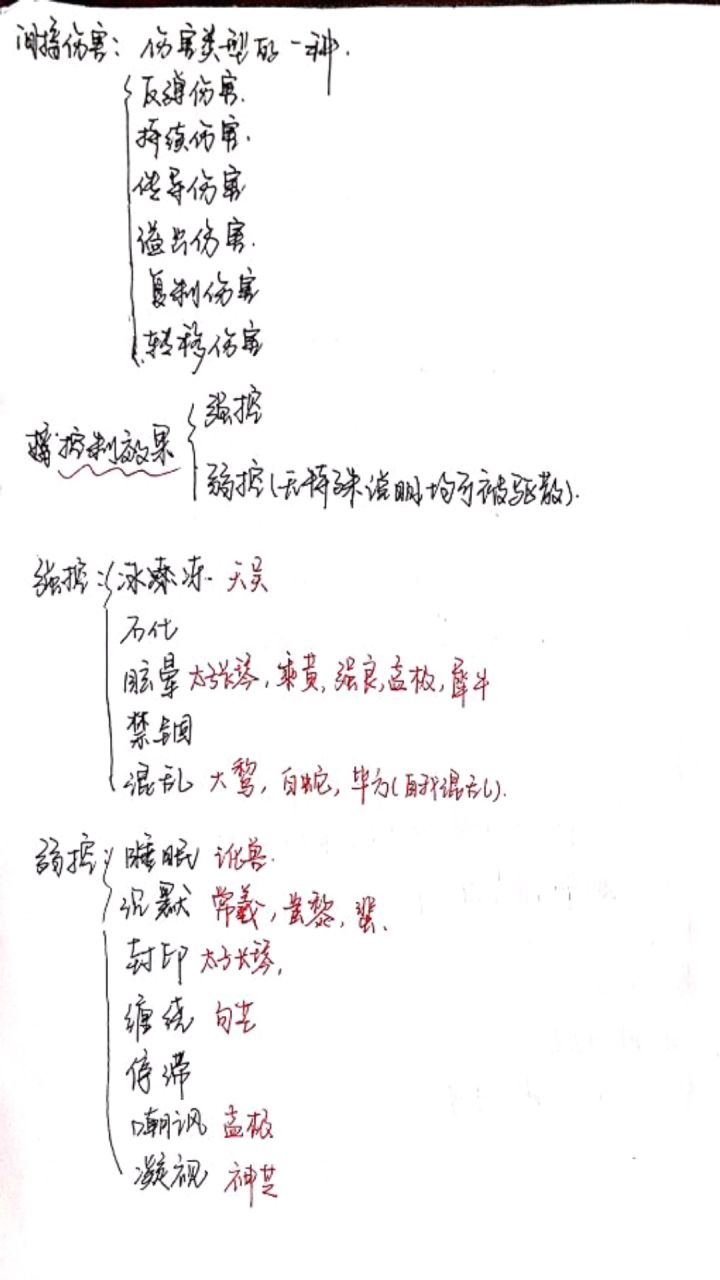 间接伤害：伤害类型的一种.
反弹伤害.
持续伤害.
传导伤害
溢出伤害.
复制伤害
转移伤害
强控
控制效果
弱控(无特殊说明均可被驱散).
强控： 冰冻. 天吴
石化
眩晕 太子长琴, 乘黄, 强良, 孟极, 犀牛
禁锢
混乱 大鹜, 白蛇, 毕方(自我混乱).
弱控： 睡眠 讹兽.
沉默 常羲, 黄黎, 蜚.
封印 太子长琴,
缠绕 句芒
停滞
嘲讽 孟极
凝视 神荼